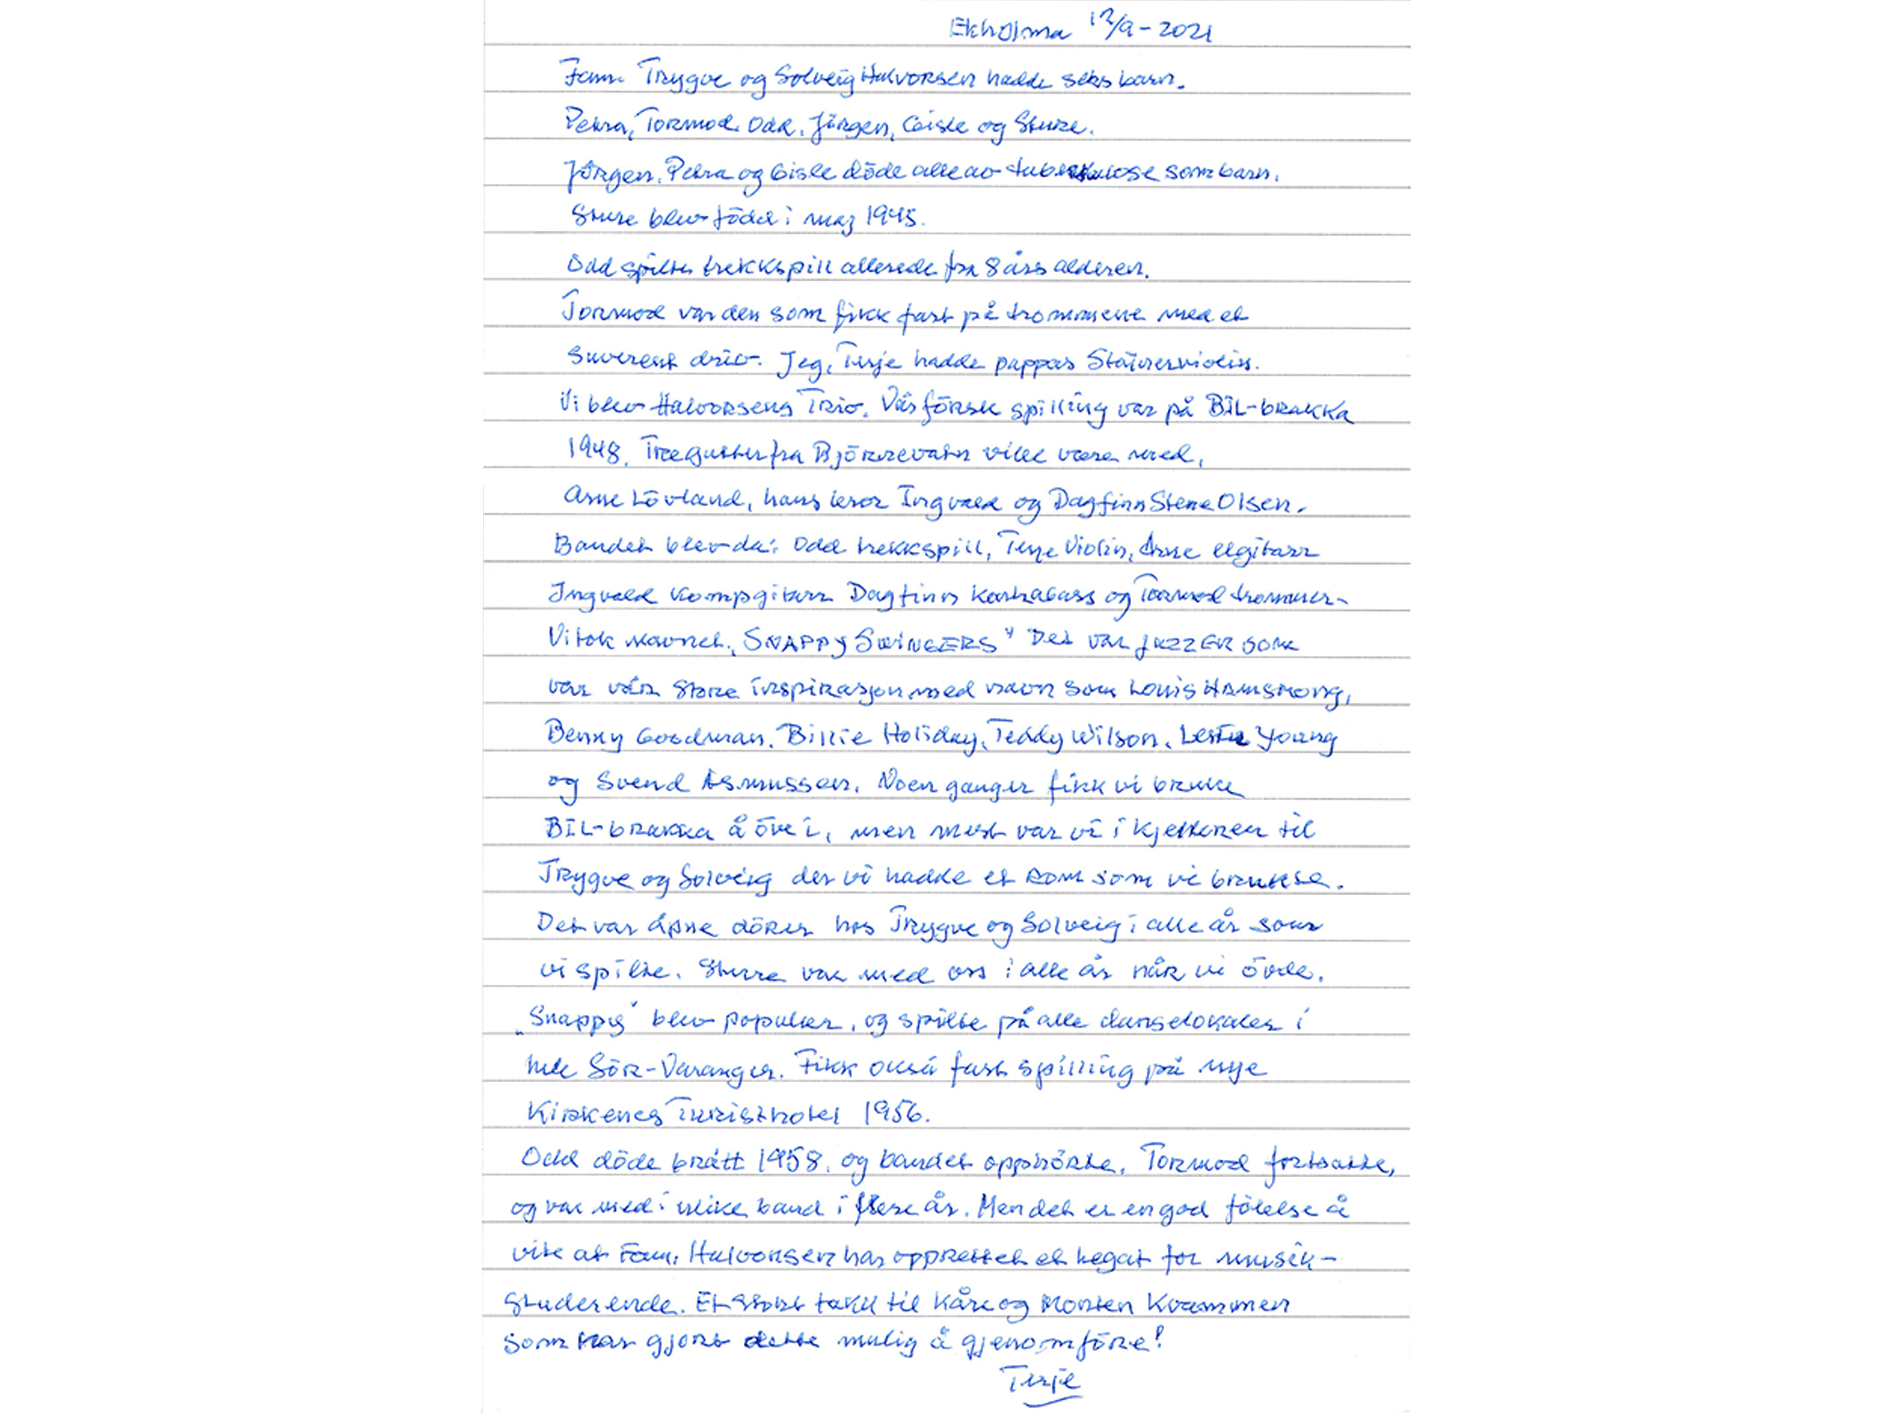 Ekholma 12/9-2021
Fam. Trygve og Solveig Halvorsen hadde seks barn.
Petra, Tormod. Odd. Jörgen, Gisle og Sture.
Jörgen. Petra og Gisle döde alle av tuberkulose som barn.
Sture blev född i maj 1945.
Odd spilte trekkspill allerede fra 8 års alderen.
Tormod var den som fikk fart på trommene med et
Suverent driv. Jeg, Terje hadde pappas Stainerviolin.
Vi blev Halvorsens Trio. Vår förste spilling var på BIL-brakka
1948. Tre gutter fra Björnevatn ville være med.
Arne Lövland, hans bror Ingvald og Dagfinn Stene Olsen.
Bandet blev da: Odd trekkspill, Terje Violin, Arne elgitarr
Ingvald Kompgitarr Dagfinn Kontrabass og Tormod trommer-
Vi tok navnet „SNAPPY SWINGERS" Det var JAZZEN som
var vår store inspirasjon med navn som Louis Armstrong,
Benny Goodman. Billie Holiday, Teddy Wilson. Lester Young
og Svend Asmussen. Noen ganger fikk vi bruke
BIL-brakka å öve i, men mest var vi i kjelleren til
Trygve og Solveig der vi hadde et rom som vi brukte.
Det var åpne dörer hos Trygve og Solveig i alle år som
vi spilte. Sture var med oss i alle år når vi övde.
„Snappy" blev populær, og spilte på alle danselokaler i
hele Sör-Varanger. Fikk också fast spilling på nye
Kirkenes Turisthotel 1956.
Odd döde brått 1958. og bandet opphörte. Tormod fortsatte,
og var med i ulike band i flere år. Men det er en god fölelse å
vite at Fam. Halvorsen har opprettet et legat for musik-
studerende. Et stort takk til Kåre og Morten Kvammen
som har gjort dette mulig å gjenomföre!
Terje